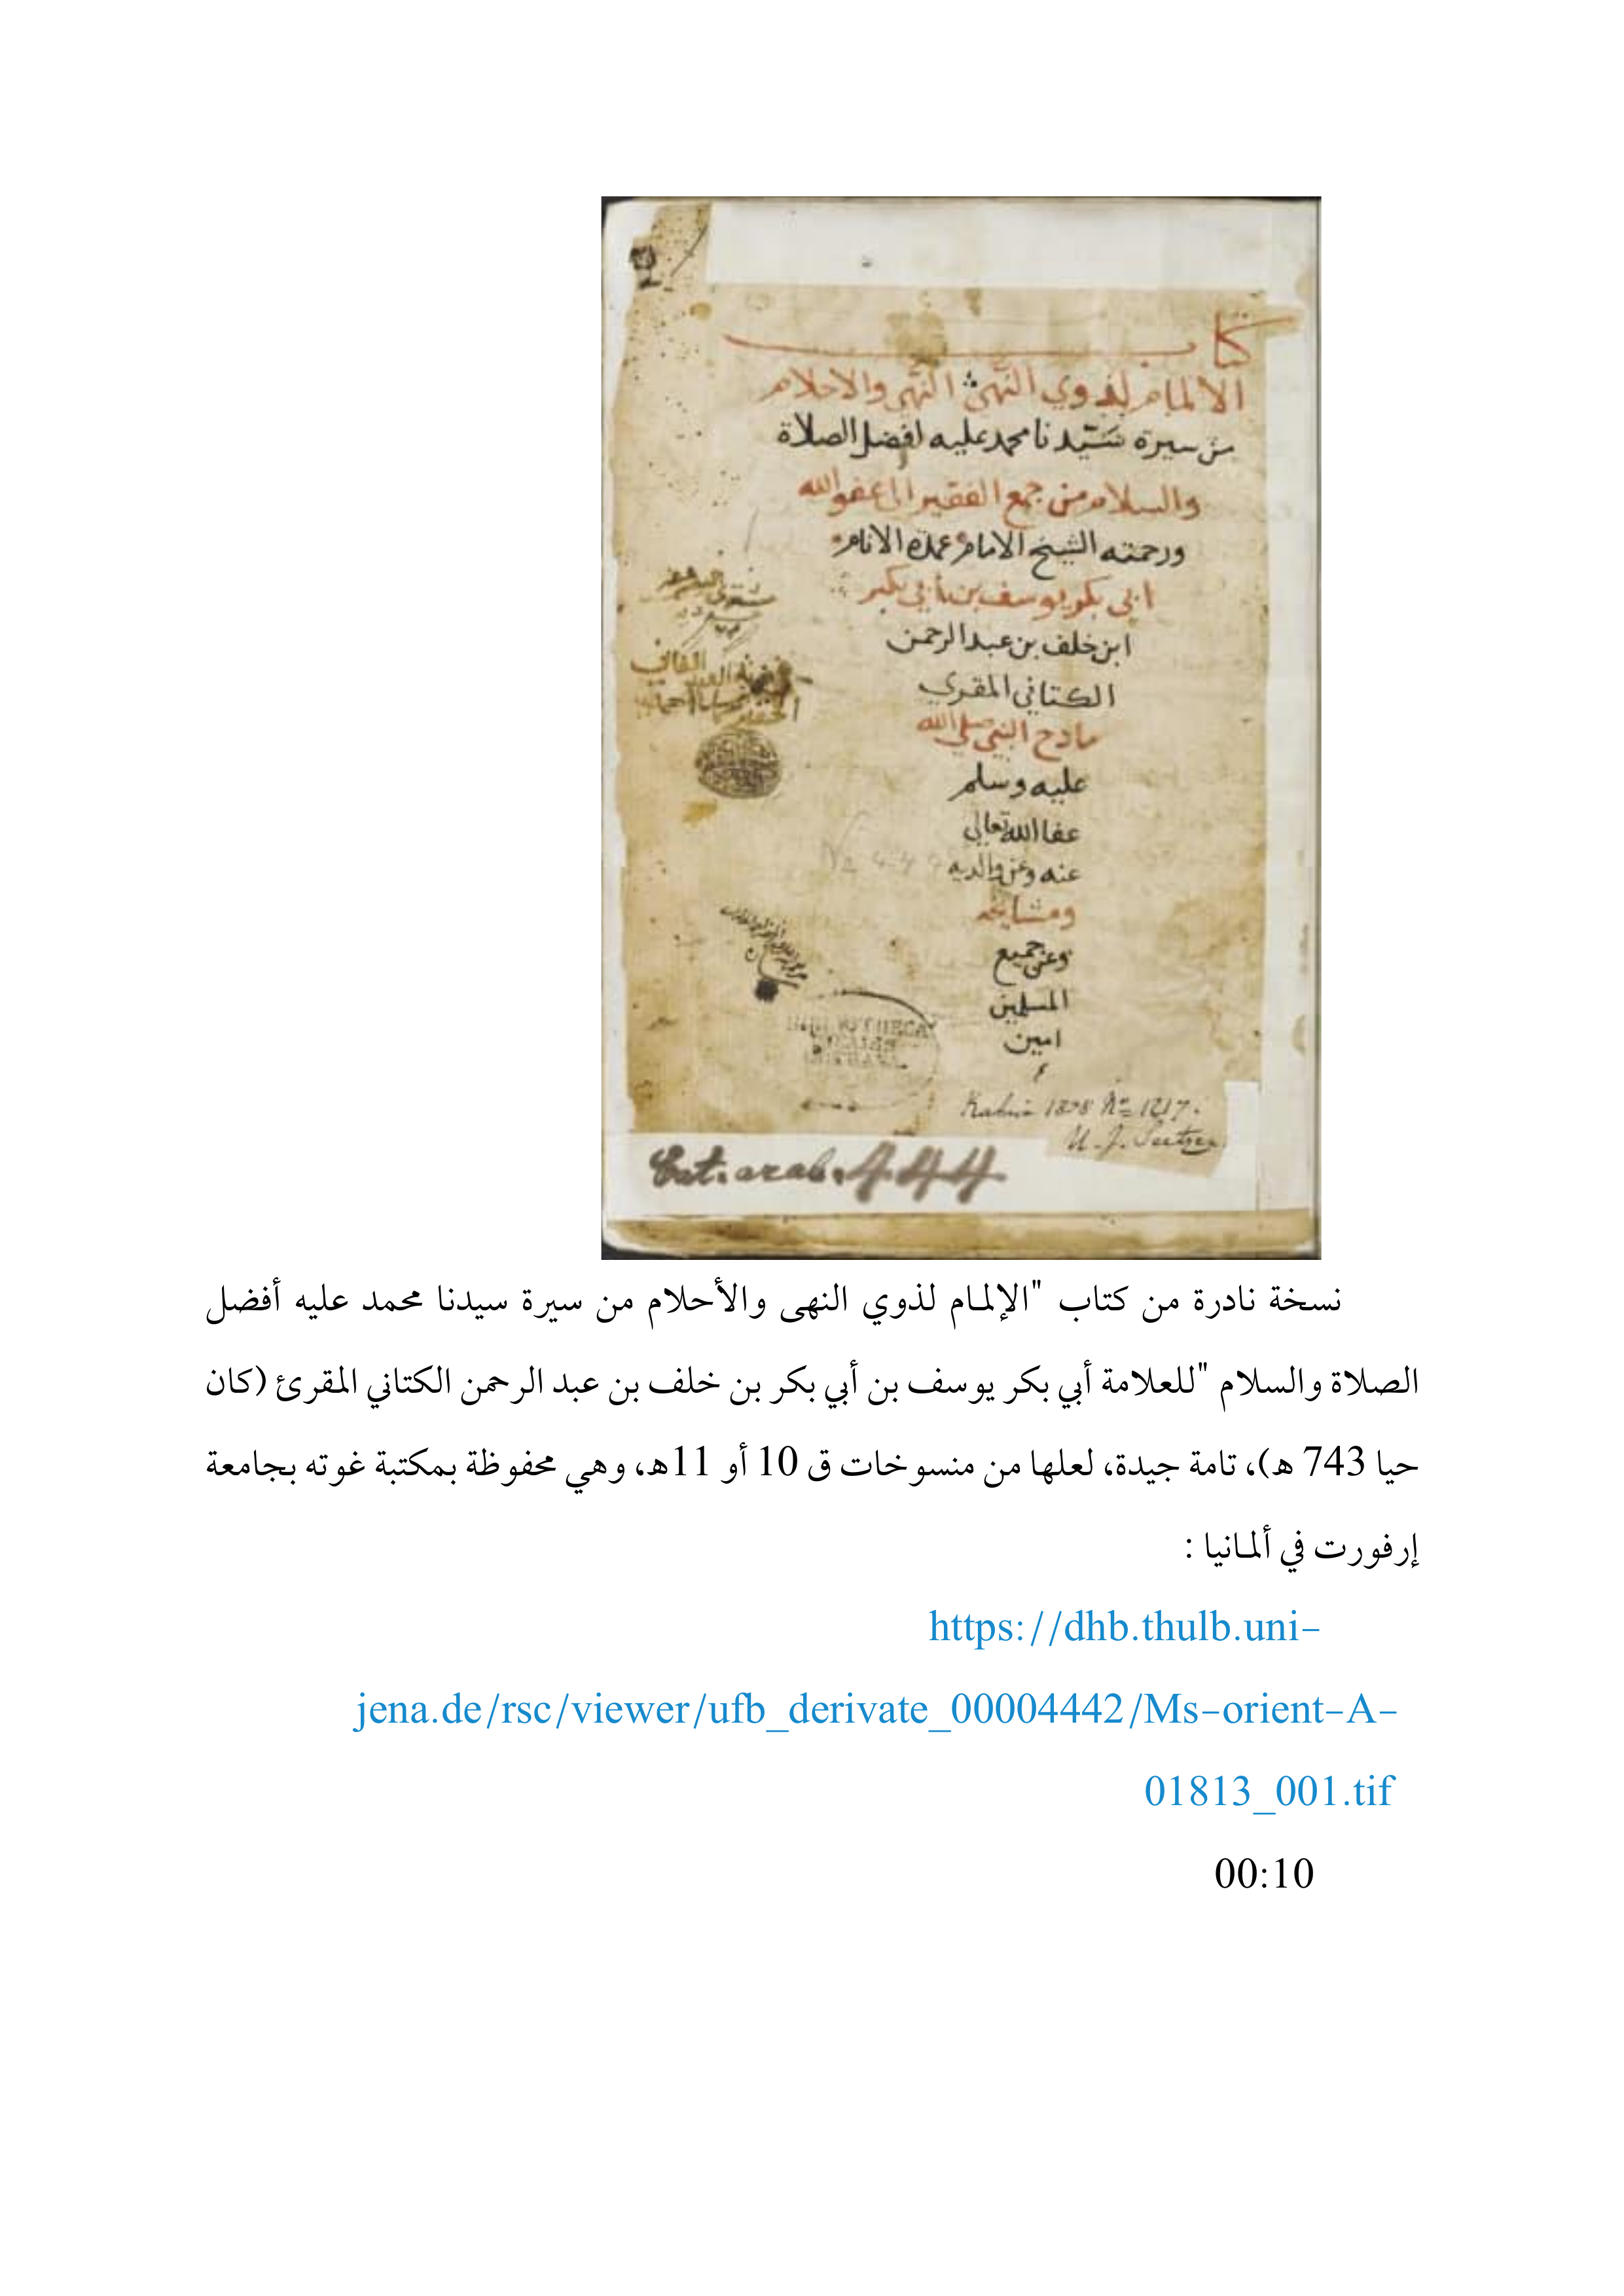 كتاب
الالمام لذوي النهى النهى والاحلام
من سيرة سيدنا محمد عليه افضل الصلاة
والسلام من جمع الفقير الى عفو الله
ورحمته الشيخ الامام عمدة الانام
ابي بكر يوسف بن أبي بكر
ابن خلف بن عبد الرحمن
الكتاني المقري
مادح النبي صلى الله
عليه وسلم
عفا الله تعالى
عنه وعن والديه
ومشايخه
وعن جميع
المسلمين
امين
1808 No 1217.
U. J. Seetzen
Cat. arab. 444
نسخة نادرة من كتاب "الإلمام لذوي النهى والأحلام من سيرة سيدنا محمد عليه أفضل
الصلاة والسلام "للعلامة أبي بكر يوسف بن أبي بكر بن خلف بن عبد الرحمن الكتاني المقرئ (كان
حيا 743 هـ)، تامة جيدة، لعلها من منسوخات ق 10 أو 11هـ، وهي محفوظة بمكتبة غوته بجامعة
إرفورت في ألمانيا :
https://dhb.thulb.uni-
jena.de/rsc/viewer/ufb_derivate_00004442/Ms-orient-A-
01813_001.tif
00:10